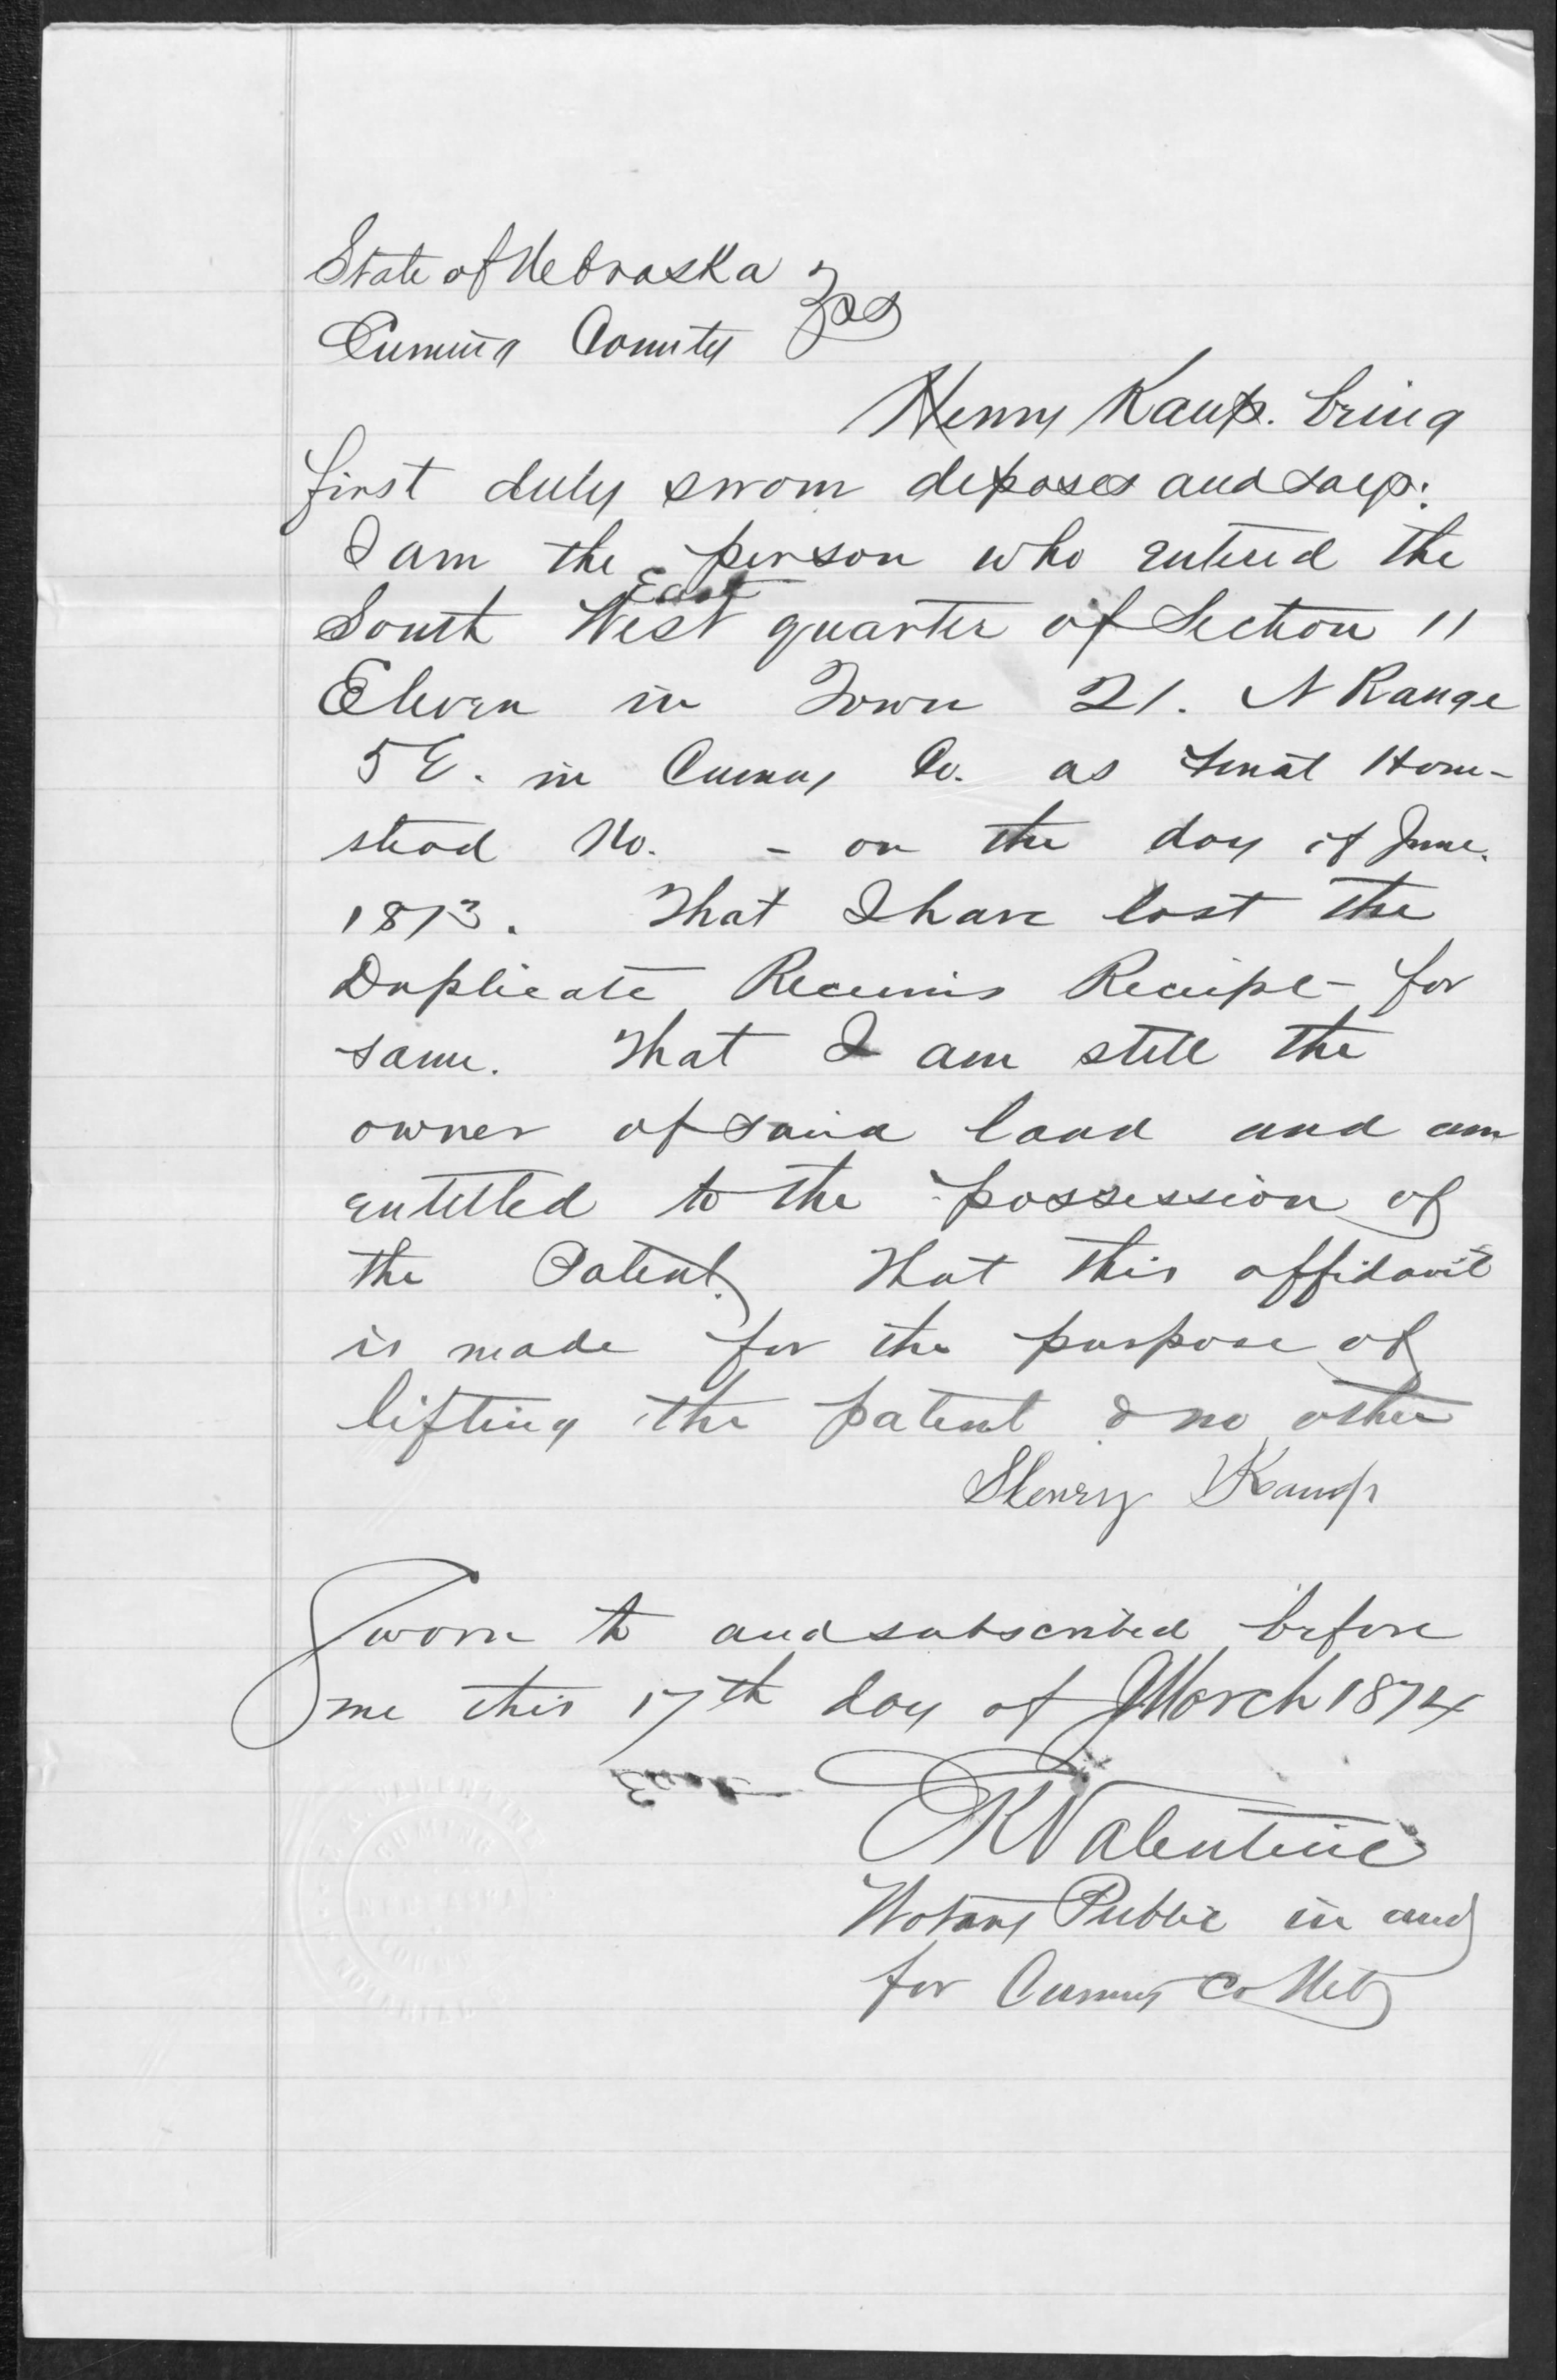 State of Nebraska } ss
Cuming County
Henry Kaup. being
first duly sworn deposes and says:
I am the person who entered the
East
South West quarter of Section 11
Eleven in Town 21. N Range
5 E. in Cuming Co. as Final Home-
stead No. - on the day of June.
1873. That I have lost the
Duplicate Receivers Receipt for
same. That I am still the
owner of said land and am
entitled to the possession of
the Patent. That this affidavit
is made for the purpose of
lifting the patent & no other
Henry Kaup
Sworn to and subscribed before
me this 17th day of March 1874
Valentine
Notary Public in and
for Cuming Co Neb
CUMING
NOTARIAL